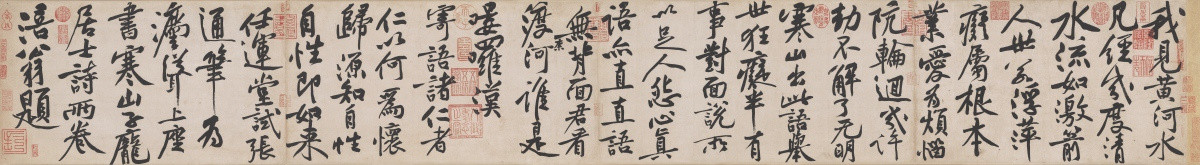 我見黃河水
凡經幾度清
水流如激箭
人世若浮萍
癡屬根本
業愛為煩惱
阬輪迴幾許
劫不解了无明
寒山出此語舉
世狂癡半有
事對面說所
以足人怨心真
語亦直直語
無背面君看
渡奈河誰是
嘍羅漢
寄語諸仁者
仁以何為懷
歸源知自性
自性即如來
任運堂試張
通筆為
法聳上座
書寒山子龐
居士詩兩卷
涪翁題